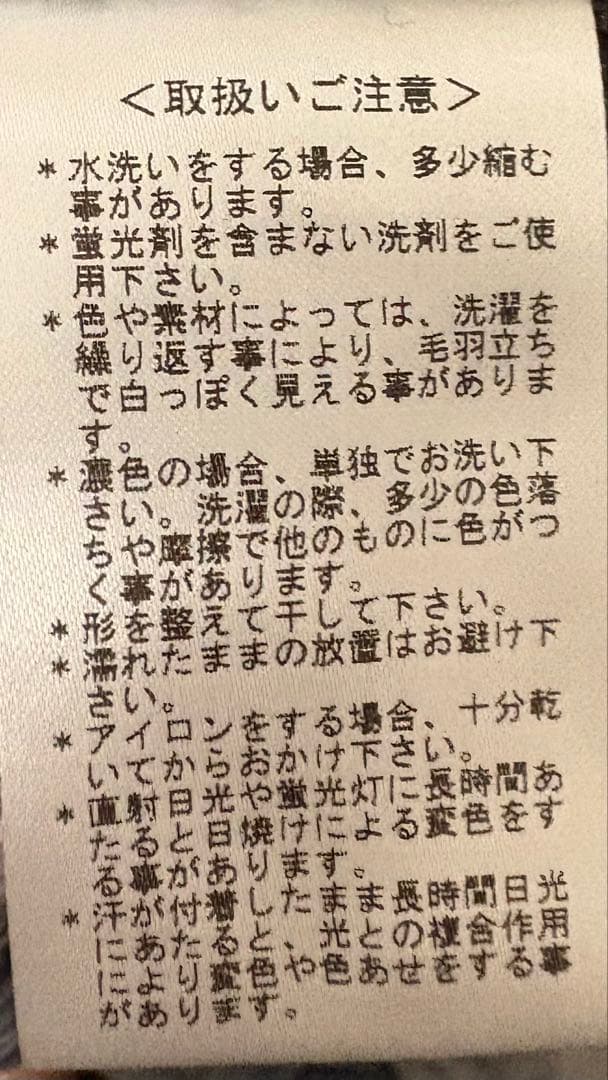 ＜取扱いご注意＞
＊水洗いをする場合、多少縮む
事があります。
＊蛍光剤を含まない洗剤をご使
用下さい。
＊色や素材によっては、洗濯を
繰り返す事により、毛羽立ち
で白っぽく見える事がありま
す。
＊濃色の場合、単独でお洗い下
さい。洗濯の際、多少の色落
ちや摩擦で他のものに色がつ
く事があります。
＊形を整えて干して下さい。
＊濡れたままの放置はお避け下
さい。
＊アイロンをする場合、十分乾
いてからおかけ下さい。
＊直射日光や蛍光灯に長時間あ
たると日焼けによる変色をす
る事があります。
＊汗が付着したまま長時間日光
にあたり、また、光の複合作用
により
があります。